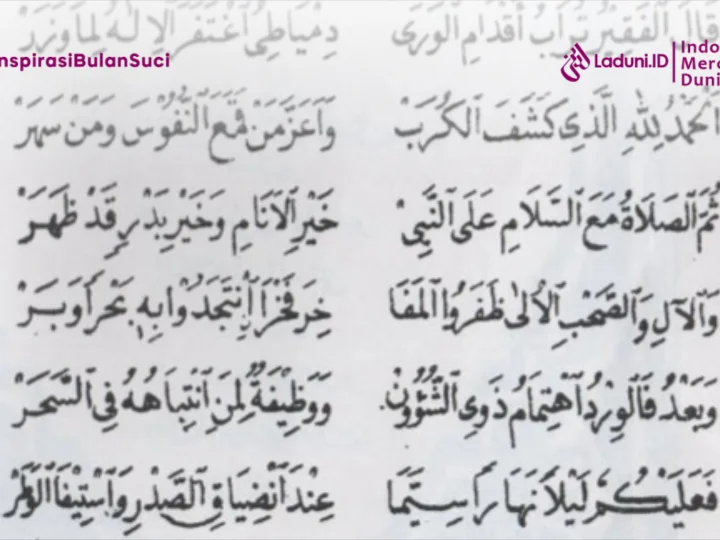 قَالَ ٱلْفَقِيْرُ تُرَابُ أَقْدَامِ ٱلْوَرَى دِمْيَاطِى ٱغْتَفَرَ ٱلْإِلٰهُ لِمَا وَزَرْ
nspirasiBulanSuci
Laduni.ID
Indo
Merd
Duni
اَلْحَمْدُ لِلّٰهِ ٱلَّذِى كَشَفَ ٱلْكُرَبْ وَٱعَزَّ مَنْ قَمَعَ ٱلنُّفُوْسَ وَمَنْ سَهَرْ
ثُمَّ ٱلصَّلَاةُ مَعَ ٱلسَّلَامِ عَلَى ٱلنَّبِىْ خَيْرِ ٱلْأَنَامِ وَخَيْرِ بَدْرٍ قَدْ ظَهَرْ
وَٱلْآلِ وَٱلصَّحْبِ ٱلْأُلىٰ ظَفَرُوا ٱلْمَفَا خِرَ فَخْرًا ٱنْتَجَدُوْا بِهِ بَحْرًا وَبَرْ
وَبَعْدُ فَٱلْوِرْدُ ٱهْتِمَامُ ذَوِى ٱلشُّؤُوْنْ وَوَظِيْفَةٌ لِمَنِ ٱنْتِبَاهُهُ فِى ٱلسَّحَرْ
فَعَلَيْكُمْ لَيْلًا نَهَارًا سِيَّمَا عِنْدَ ٱنْضِيَاقِ ٱلصَّدْرِ وَٱسْتِيْفَا ٱلْوَطَرْ